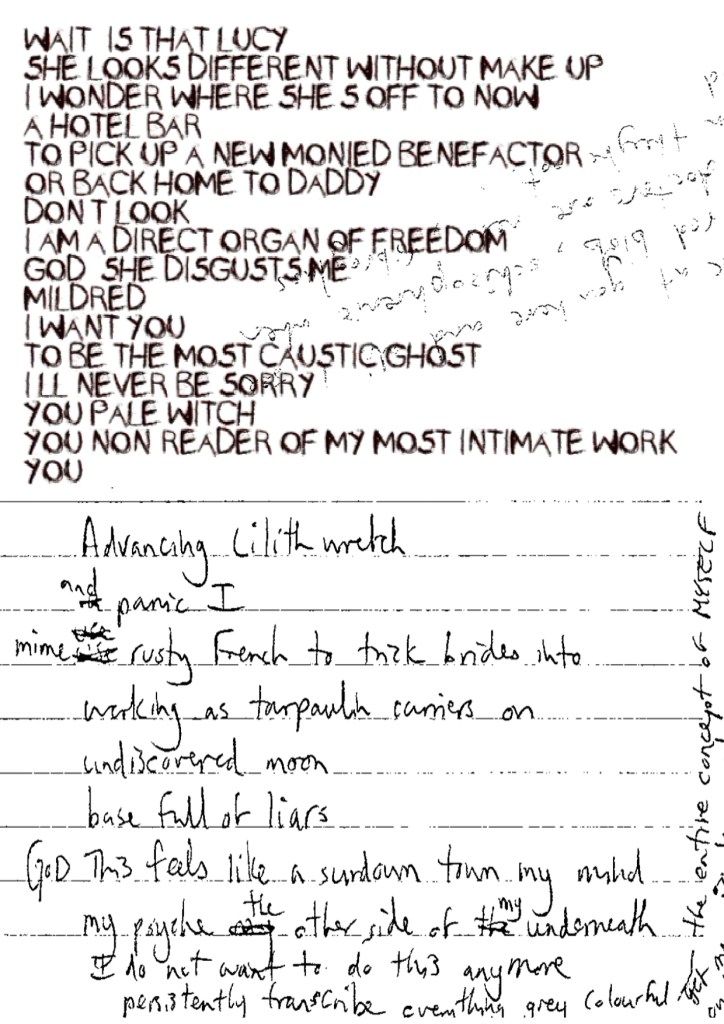 WAIT IS THAT LUCY
SHE LOOKS DIFFERENT WITHOUT MAKE UP
I WONDER WHERE SHE S OFF TO NOW
A HOTEL BAR
TO PICK UP A NEW MONIED BENEFACTOR
OR BACK HOME TO DADDY
DON T LOOK
I AM A DIRECT ORGAN OF FREEDOM
GOD SHE DISGUSTS ME
MILDRED
I WANT YOU
TO BE THE MOST CAUSTIC GHOST
I LL NEVER BE SORRY
YOU PALE WITCH
YOU NON READER OF MY MOST INTIMATE WORK
YOU
Advancing Lilith wretch
and panic I
mime rusty French to trick brides into
working as tarpaulin carriers on
undiscovered moon
base full of liars
GOD This feels like a sundown town my mind
my psyche the other side of my underneath
I do not want to do this anymore
persistently transcribe everything grey colourful
the entire concept of MYSELF